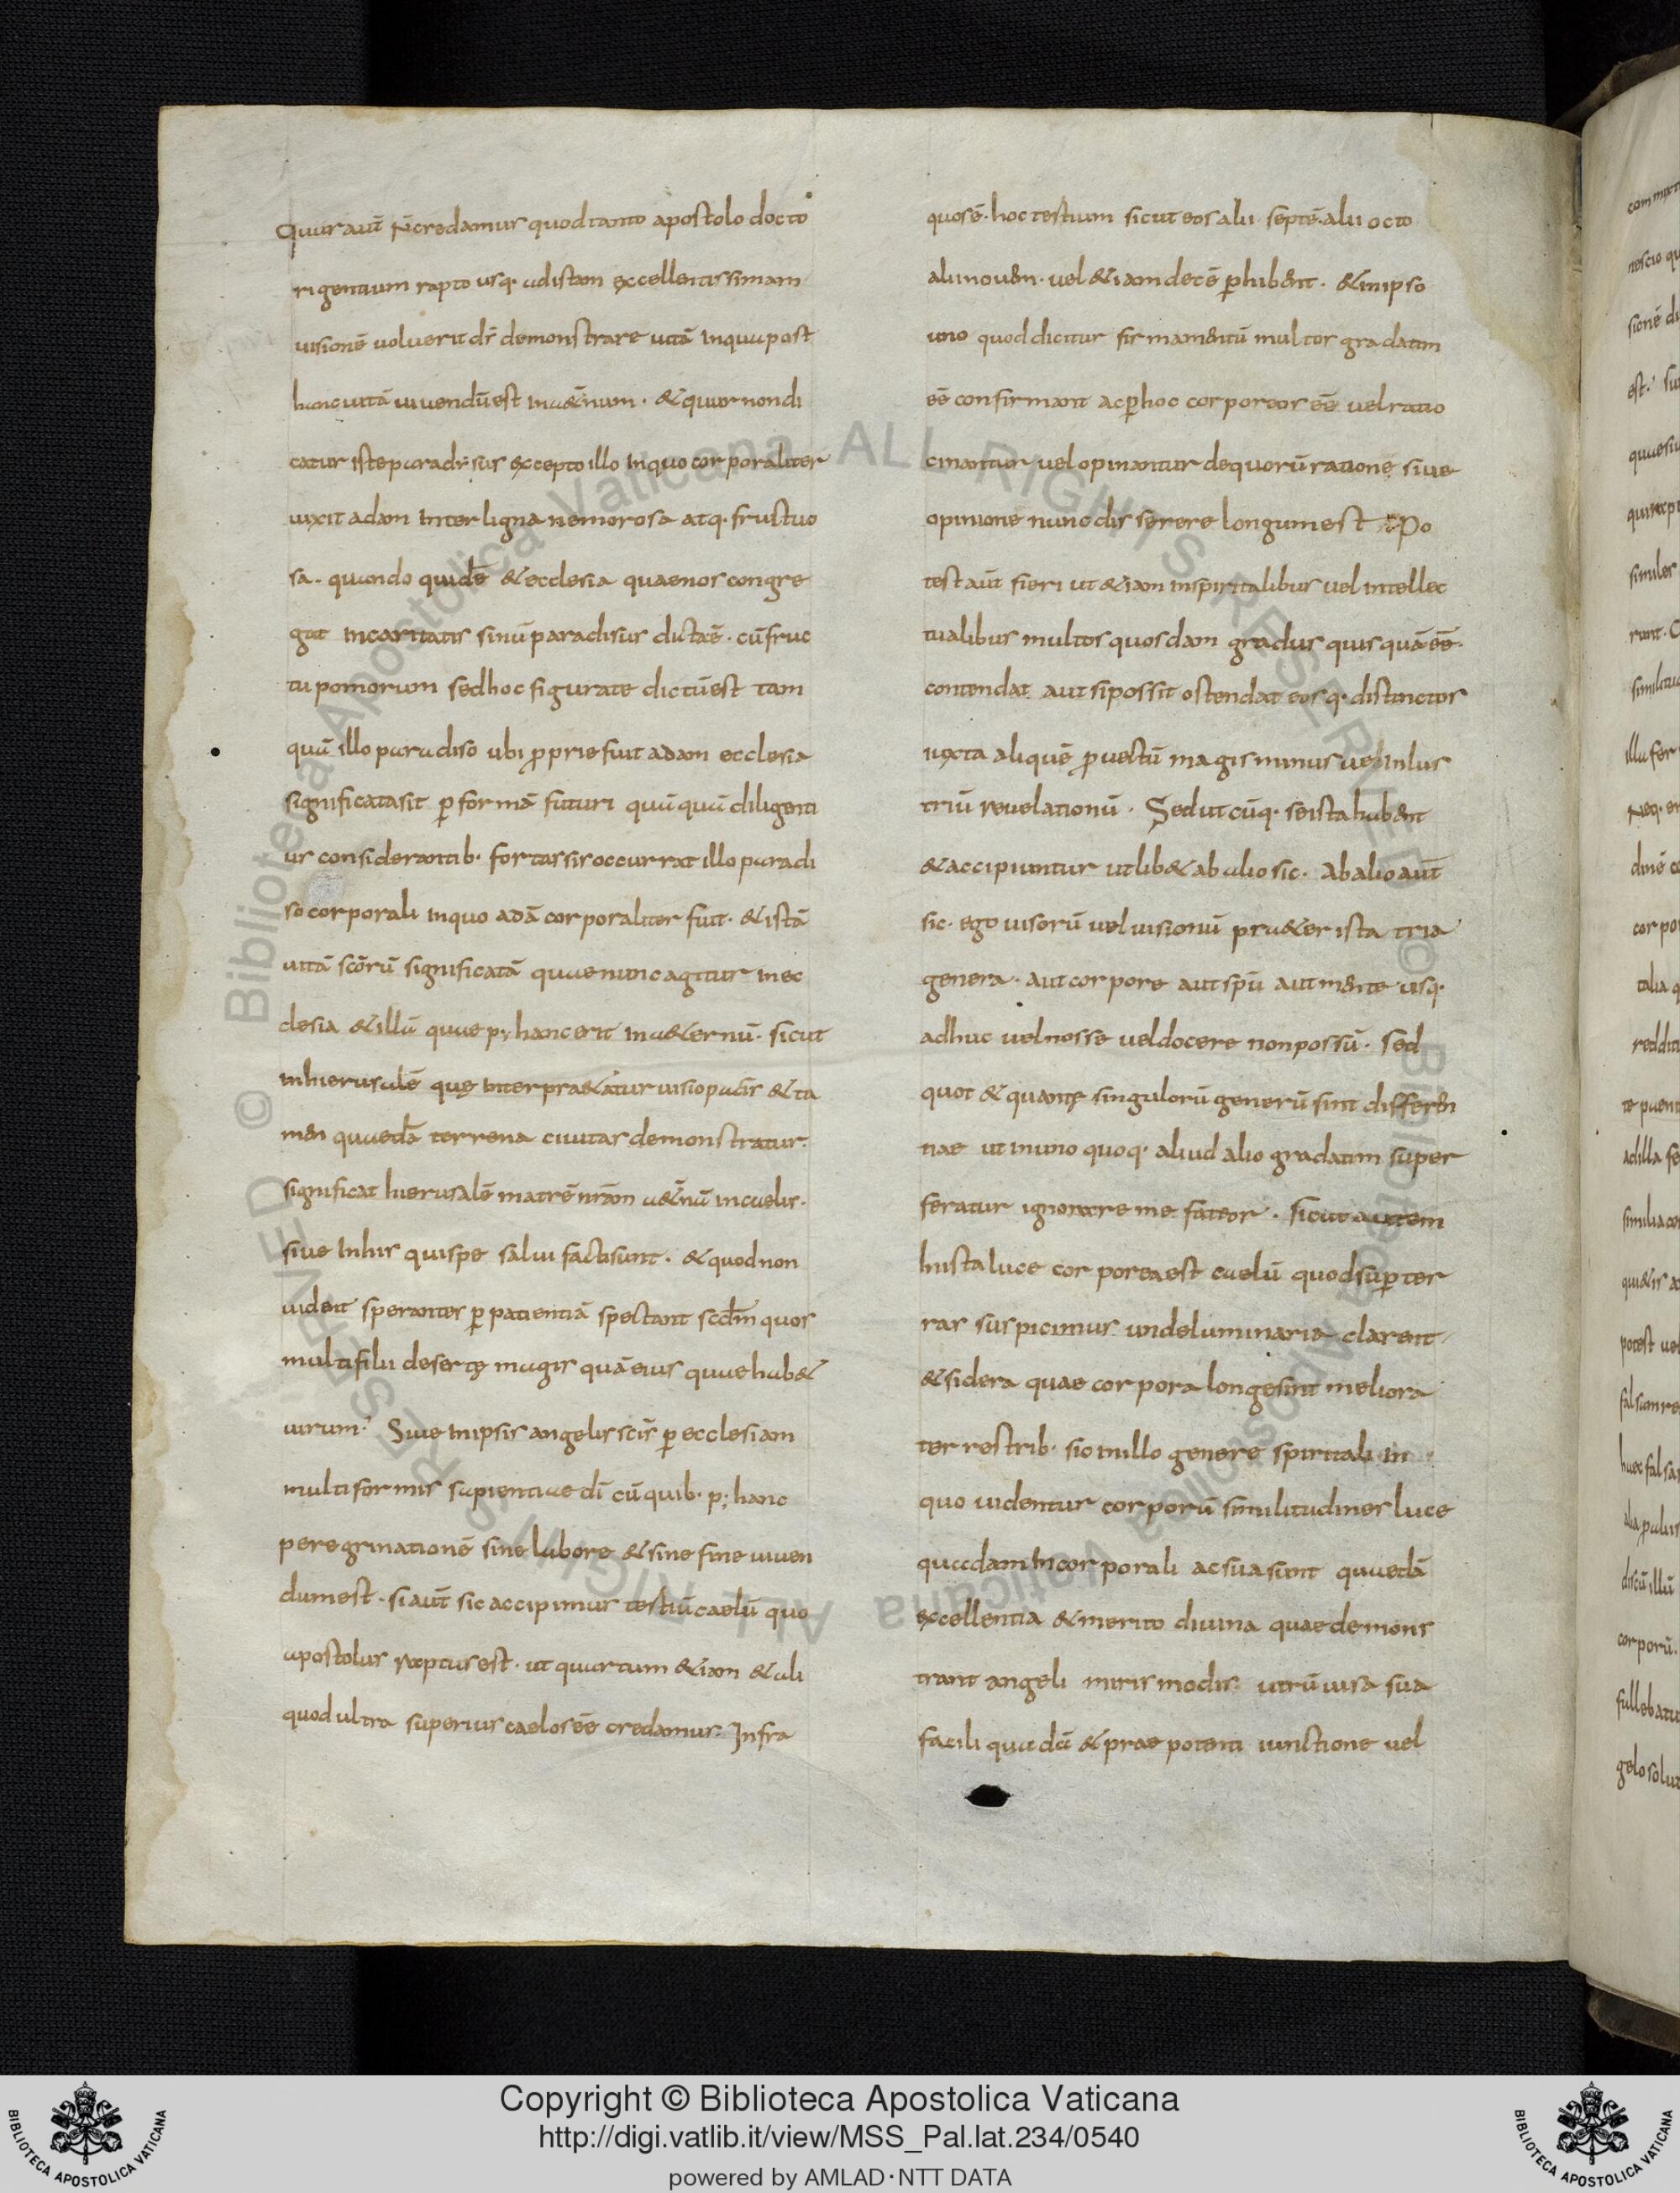 Quur aut̄ n̄ credamus quod tanto apostolo docto
ri gentium rapto usq· ad istam excellentissimam
uisionē uoluerit dr̄ demonstrare uitā inqua post
hanc uitā uiuendū est in aet̄num · & quur non di
catur iste paradisus excepto illo inquo corporaliter
uixit adam inter ligna nemorosa atq· fructuo
sa · quando quidē & ecclesia quae nos congre
gat in caritatis sinū paradisus dicta ē · cū fruc
tu pomorum sed hoc figurate dictū est tam
quā illo paradiso ubi p̄prie fuit adam ecclesia
significata sit p̱ formā futuri quā quā diligenti
us considerantib· fortassis occurrat illo paradi
so corporali inquo adā corporaliter fuit · & istā
uitā sc̄orū significatā quae nunc agitur in ec
clesia & illā quae p; hanc erit in aeternū · sicut
in hierusalē quę interpraetatur uisio pacis & ta
men quaedā terrena ciuitas demonstratur.
significat hierusalē matrē nr̄am aet̄nā in caelis·
siue in his qui spe salui facti sunt · & quod non
uident sperantes p̱ patientiā spectant scd̄m quos
multi filii desertę magis quā eius quae hab&
uirum · Siue in ipsis angelis sc̄is p̱ ecclesiam
multiformis sapientiae dī cū quib· p; hanc
peregrinationē sine labore & sine fine uiuen
dum est · si aut̄ sic accipimus tertiū caelū quo
apostolus raptus est · ut quartum &iam & ali
quod ultra superius caelos ēē credamus · Infra
quos ē · hoc tertium sicut eos alii septē · alii octo
alii nouem · uel &iam decē p̱hibent · & in ipso
uno quod dicitur firmamentū multos gradatim
ēē confirmant ac p̱ hoc corporeos ēē uel ratio
cinantur uel opinantur de quorū ratione siue
opinione nunc disserere longum est · Po
test aut̄ fieri ut &iam in spiritalibus uel intellec
tualibus multos quosdam gradus quisquā ēē·
contendat aut si possit ostendat eosq· distinctos
iuxta aliquē p̄uectū magis minus ue inlus
triū reuelationū · Sed ut cūq· se ista habent
& accipiuntur ut lib& ab alio sic · Ab alio aut̄
sic · ego uisorū uel uisionū praeter ista tria
genera · aut corpore aut sp̄u aut mente usq·
adhuc uel nosse uel docere non possū · sed
quot & quantę singulorū generū sint differen
tiae ut in uno quoq· aliud alio gradatim super
feratur ignorare me fateor · sicut autem
In ista luce corporea est caelū quod sup̱ ter
ras suspicimus unde luminaria clarent
& sidera quae corpora longe sint meliora
terrestrib· sic in illo genere spiritali in
quo uidentur corporū similitudines luce
quaedam incorporali ac sua sunt quaedā
excellentia & merito diuina quae demons
trant angeli miris modis · utrū uisa sua
facili quadā & praepotenti iunctione uel
Copyright © Biblioteca Apostolica Vaticana
http://digi.vatlib.it/view/MSS_Pal.lat.234/0540
powered by AMLAD·NTT DATA